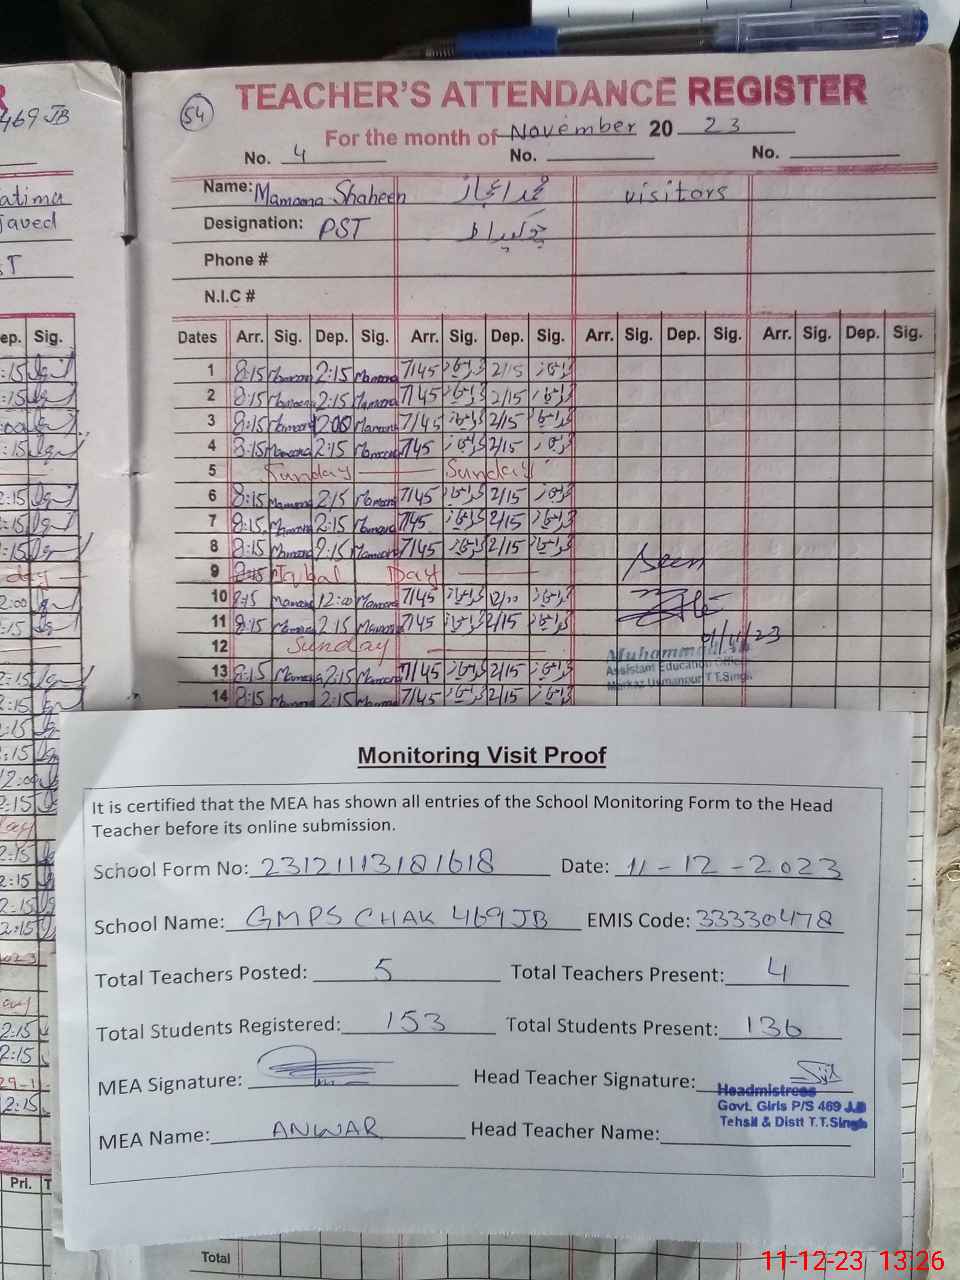 469 JB
54
TEACHER'S ATTENDANCE REGISTER
For the month of November 20 23
No. 4 No. No.
Name: Mamoona Shaheen visitors
Designation: PST
Phone #
N.I.C #
Javed
Dates Arr. Sig. Dep. Sig. Arr. Sig. Dep. Sig. Arr. Sig. Dep. Sig. Arr. Sig. Dep. Sig.
1 8:15 Mamoona 2:15 Mamoona 7/45 2/15
2 8:15 Mamoona 2:15 Mamoona 7/45 2/15
3 8:15 Mamoona Mamoona 7/45 2/15
4 8:15 Mamoona 2:15 Mamoona 7/45 2/15
5 Sunday Sunday
6 8:15 Mamoona 2:15 Mamoona 7/45 2/15
7 8:15 Mamoona 2:15 Mamoona 7/45 2/15
8 8:15 Mamoona 2:15 Mamoona 7/45 2/15
9 8:15 Iqbal Day
10 8:15 Mamoona 12:00 Mamoona 7/45 12/00
11 8:15 Mamoona 2:15 Mamoona 7/45 2/15
12 Sunday
13 8:15 Mamoona 2:15 Mamoona 7/45 2/15
14 8:15 Mamoona 2:15 Mamoona 7/45 2/15
Seen
Muhammad
Assistant Education Officer
Markaz Usmanpur T.T.Singh
Monitoring Visit Proof
It is certified that the MEA has shown all entries of the School Monitoring Form to the Head
Teacher before its online submission.
School Form No: 23121113181618 Date: 11-12-2023
School Name: GMPS CHAK 469 JB EMIS Code: 33330478
Total Teachers Posted: 5 Total Teachers Present: 4
Total Students Registered: 153 Total Students Present: 136
MEA Signature: Head Teacher Signature:
Headmistress
Govt. Girls P/S 469 J.B
Tehsil & Distt T.T.Singh
MEA Name: ANWAR Head Teacher Name:
Total
11-12-23 13.26